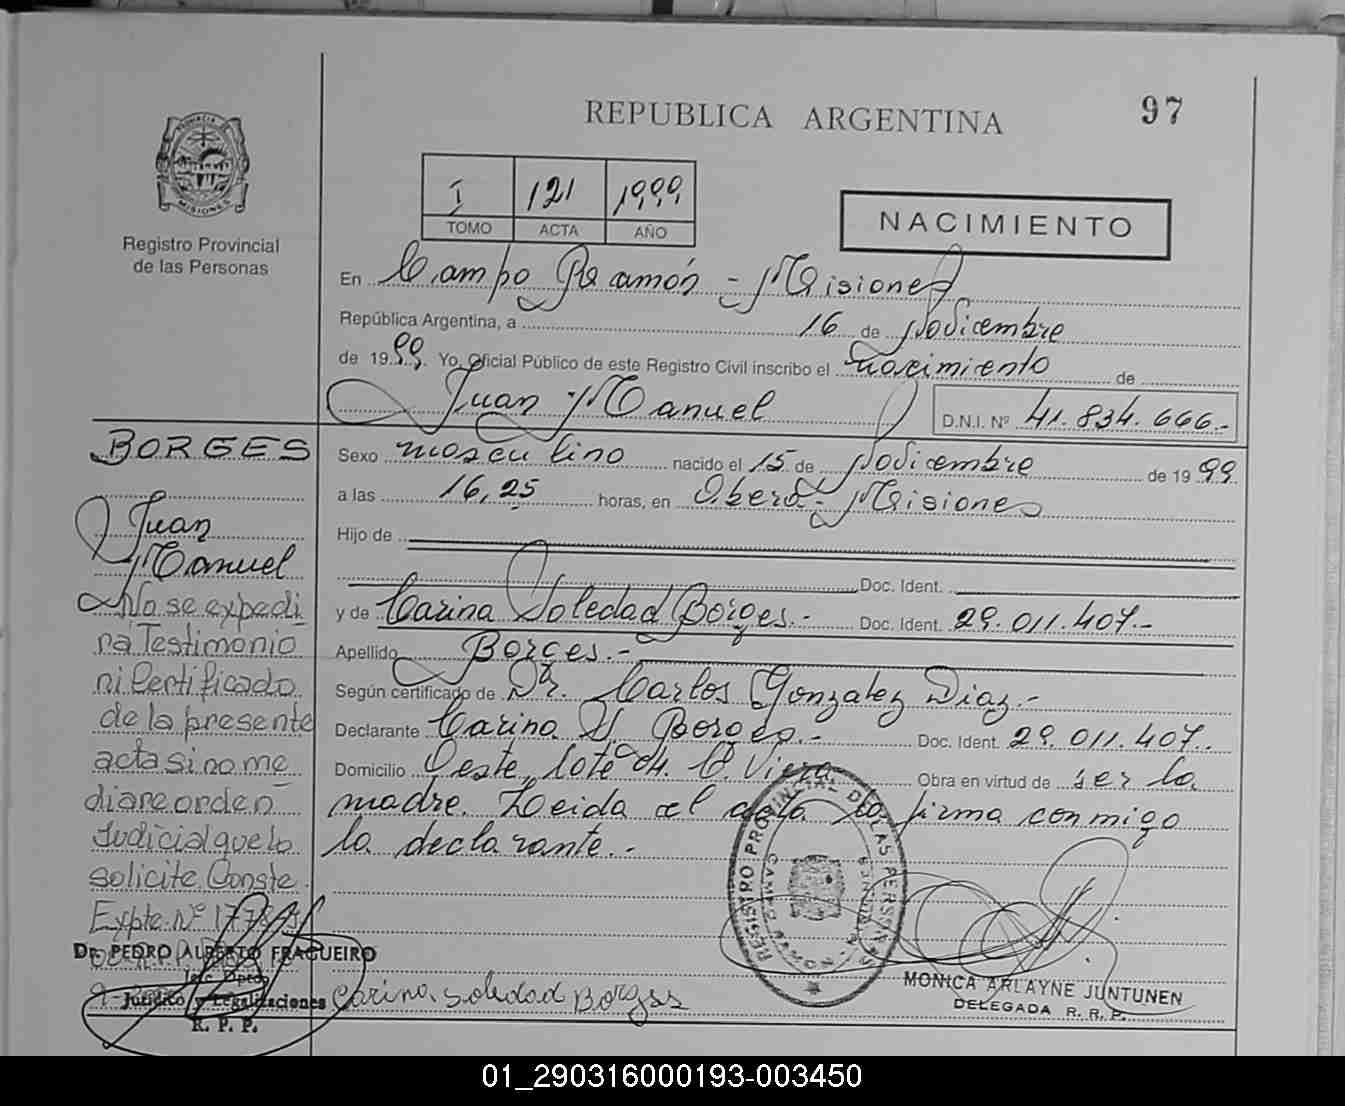 REPUBLICA ARGENTINA
97
PROVINCIA DE MISIONES
Registro Provincial
de las Personas
I 121 1999
TOMO ACTA AÑO
NACIMIENTO
En Campo Ramón - Misiones
República Argentina, a 16 de Noviembre
de 1999. Yo, Oficial Público de este Registro Civil inscribo el nacimiento de
Juan Manuel
D.N.I. Nº 41.834.666.-
Sexo masculino nacido el 15 de Noviembre de 1999
a las 16,25 horas, en Oberá - Misiones
Hijo de
Doc. Ident.
y de Carina Soledad Borges.- Doc. Ident. 29.011.407.-
Apellido Borges.-
Según certificado de Dr. Carlos Gonzalez Diaz.-
Declarante Carina S Borges.- Doc. Ident. 29.011.407..
Domicilio Oeste, lote 04. C. Viera Obra en virtud de ser la
madre. Leida el acta la firma conmigo
la declarante.-
BORGES
Juan
Manuel
No se expedi
rá Testimonio
ni Certificado
de la presente
acta si no me
diare orden
Judicial que lo
solicite. Conste.
Expte. Nº
Dr. PEDRO ALBERTO FRAGUEIRO
Jefe Dpto.
Jurídico y Legalizaciones
R. P. P.
Carina Soledad Borges
REGISTRO PROVINCIAL DE LAS PERSONAS
CAMPO RAMON - MISIONES
MONICA ARLAYNE JUNTUNEN
DELEGADA R. R. P.
01_290316000193-003450